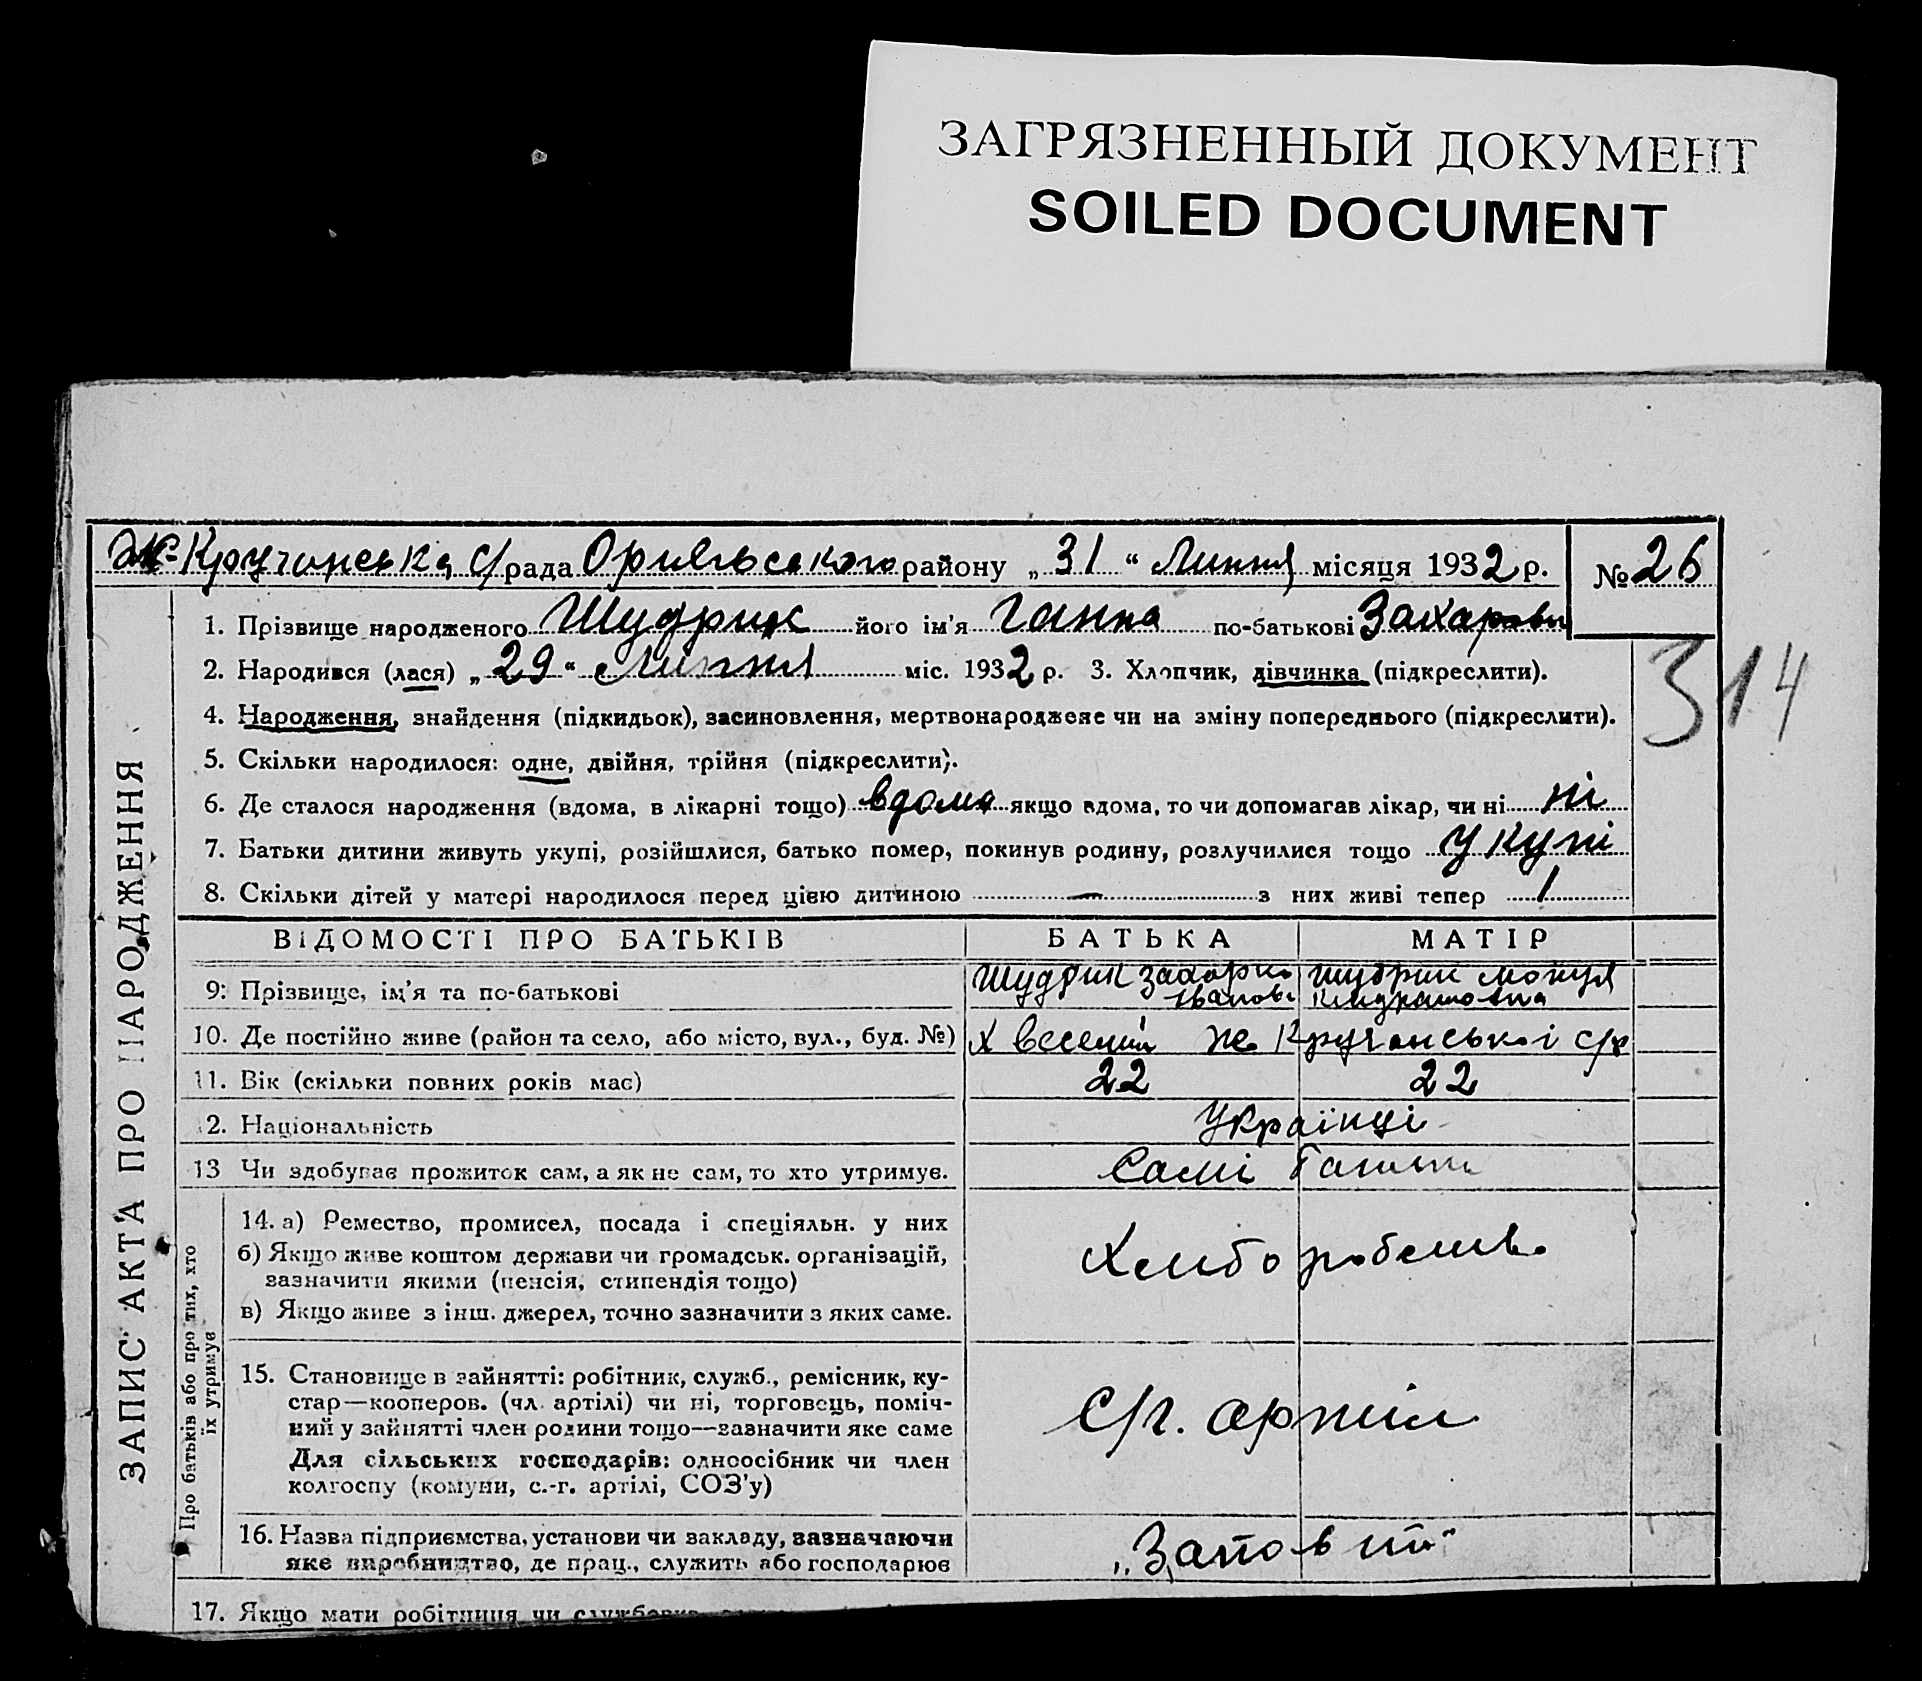 ЗАГРЯЗНЕННЫЙ ДОКУМЕНТ
SOILED DOCUMENT
Кручанська с/рада Орильського району „31“ Липня місяця 1932 р. № 26
1. Прізвище народженого Шудрик його ім’я Ганна по-батькові Захаровн
314
2. Народився (лася) „29“ Липня міс. 1932 р. 3. Хлопчик, дівчинка (підкреслити).
4. Народження, знайдення (підкидьок), засиновлення, мертвонароджене чи на зміну попереднього (підкреслити).
5. Скільки народилося: одне, двійня, трійня (підкреслити).
6. Де сталося народження (вдома, в лікарні тощо) вдома якщо вдома, то чи допомагав лікар, чи ні ні
7. Батьки дитини живуть укупі, розійшлися, батько помер, покинув родину, розлучилися тощо укупі
8. Скільки дітей у матері народилося перед цією дитиною — з них живі тепер 1
ЗАПИС АКТА ПРО НАРОДЖЕННЯ
ВІДОМОСТІ ПРО БАТЬКІВ БАТЬКА МАТІР
9. Прізвище, ім’я та по-батькові Шудрик Шудрик
10. Де постійно живе (район та село, або місто, вул., буд. №) Кручанської с/р
11. Вік (скільки повних років має) 22 22
12. Національність Українці
13 Чи здобуває прожиток сам, а як не сам, то хто утримує. Самі
Про батьків або про тих, хто
їх утримує
14. а) Ремество, промисел, посада і спеціяльн. у них
б) Якщо живе коштом держави чи громадськ. організацій,
зазначити якими (пенсія, стипендія тощо)
в) Якщо живе з інш. джерел, точно зазначити з яких саме.
Хліборобств.
15. Становище в зайнятті: робітник, служб., ремісник, ку-
стар—кооперов. (чл. артілі) чи ні, торговець, поміч-
ний у зайнятті член родини тощо—зазначити яке саме
Для сільських господарів: одноосібник чи член
колгоспу (комуни, с.-г. артілі, СОЗ’у)
С/г. артіл
16. Назва підприємства, установи чи закладу, зазначаючи
яке виробництво, де прац., служить або господарює
„Заповіт“
17. Якщо мати робітниця чи